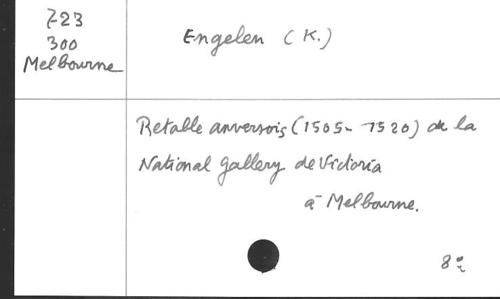 723
300
Melbourne
Engelen (K.)
Retable anversois (1505-1520) de la
National gallery de Victoria
à Melbourne.
8°